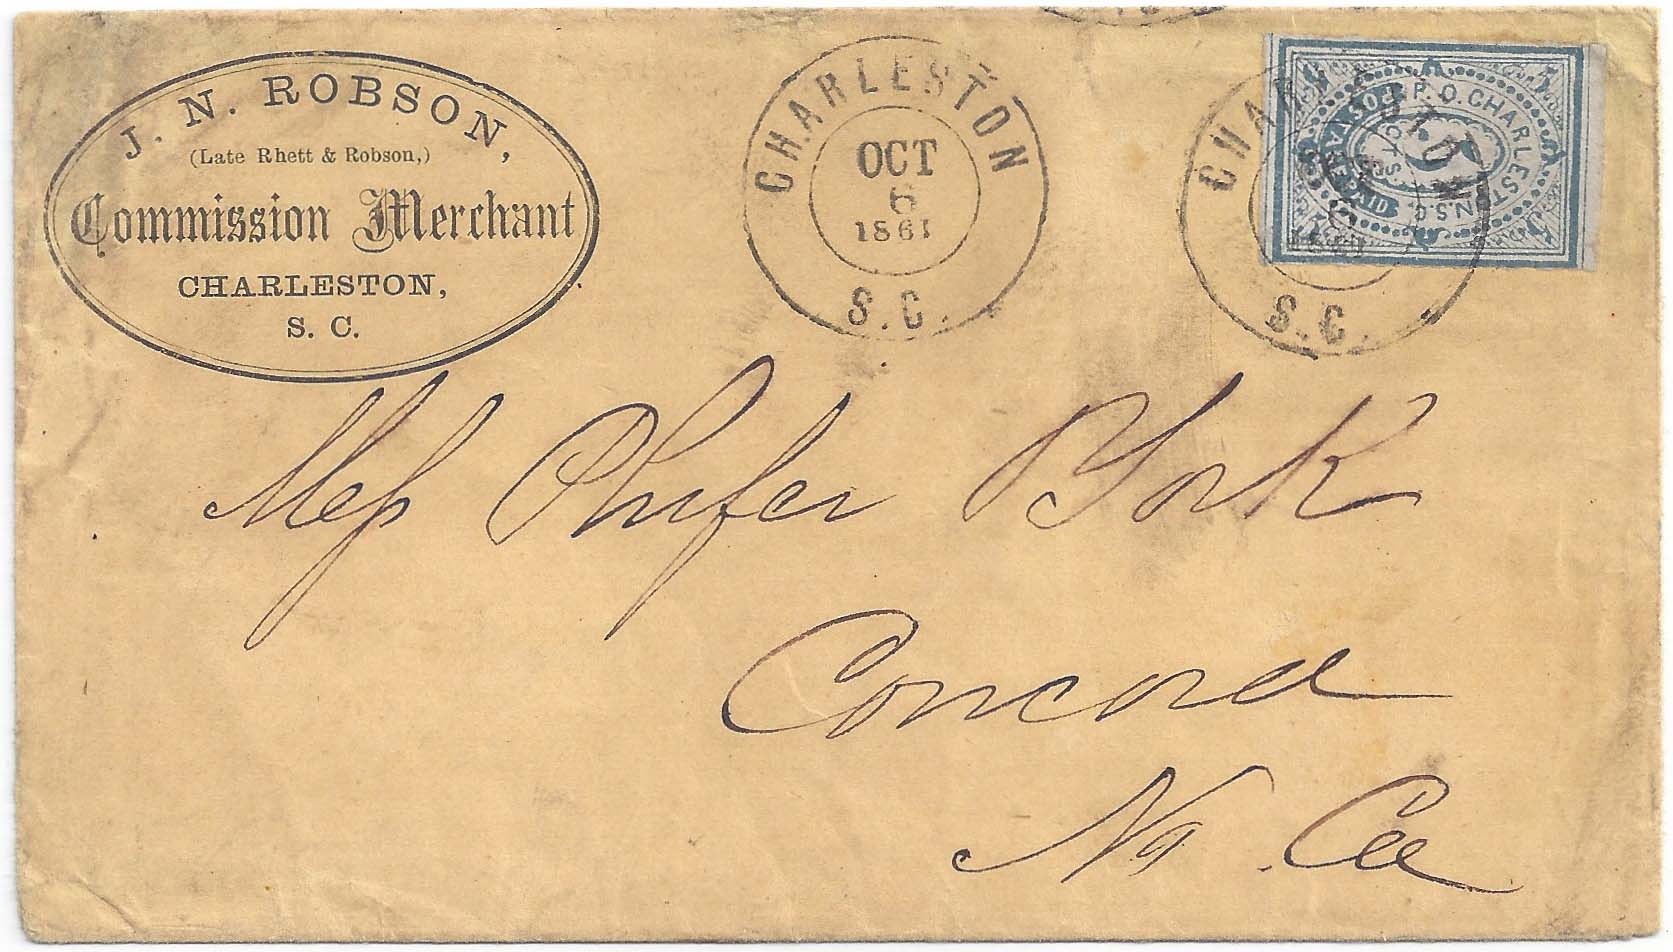 J. N. ROBSON,
(Late Rhett & Robson,)
Commission Merchant
CHARLESTON,
S. C.
CHARLESTON
OCT
6
1861
S.C.
CHARLESTON
S.C.
P.O. CHARLESTON. S.C.
POSTAGE
PAID
5
Mess Phifer & York
Concord
No. Ca